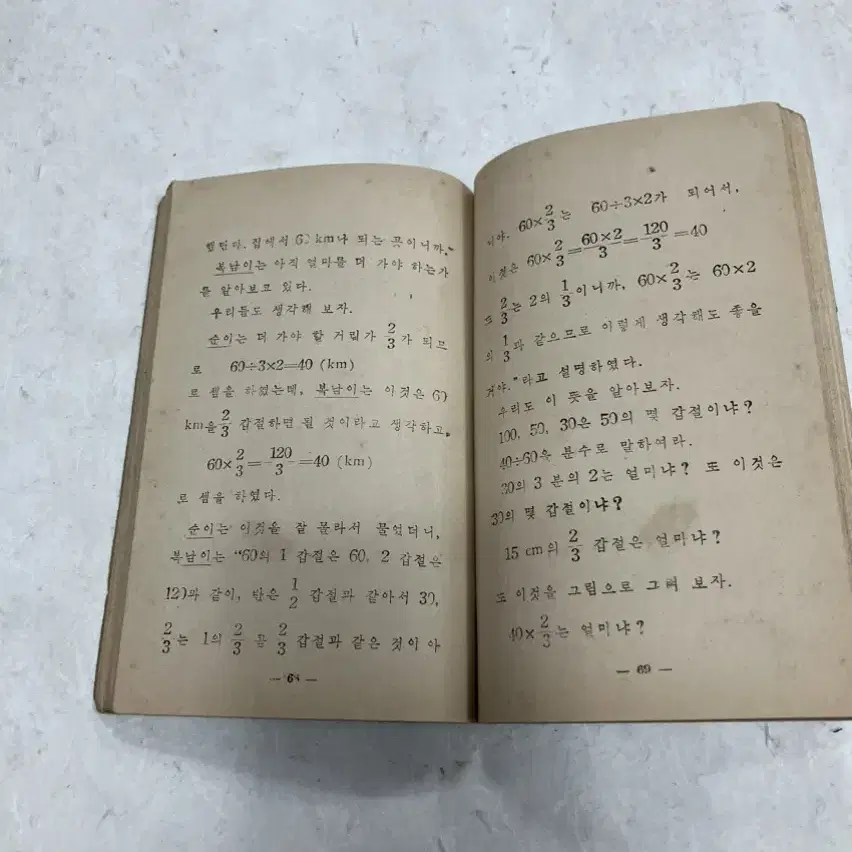 했단다. 집에서 60 km나 되는 곳이니까."
복남이는 아직 얼마를 더 가야 하는가
를 알아보고 있다.
우리들도 생각해 보자.
순이는 더 가야 할 거리가 2/3가 되므
로 60÷3×2=40 (km)
로 셈을 하였는데, 복남이는 이것은 60
km을 2/3 갑절하면 될 것이라고 생각하고,
60×2/3=120/3=40 (km)
로 셈을 하였다.
순이는 이것을 잘 몰라서 물었더니,
복남이는 "60의 1 갑절은 60, 2 갑절은
120과 같이, 반은 1/2 갑절과 같아서 30,
2/3는 1의 2/3 곧 2/3 갑절과 같은 것이 아
— 68 —
이야. 60×2/3는 60÷3×2가 되어서,
이것은 60×2/3=60×2/3=120/3=40
또 2/3는 2의 1/3이니까, 60×2/3는 60×2
의 1/3과 같으므로 이렇게 생각해도 좋을
거야."라고 설명하였다.
우리도 이 뜻을 알아보자.
100, 50, 30은 50의 몇 갑절이냐?
40÷60을 분수로 말하여라.
30의 3 분의 2는 얼마냐? 또 이것은
30의 몇 갑절이냐?
15 cm의 2/3 갑절은 얼마냐?
또 이것을 그림으로 그려 보자.
40×2/3는 얼마냐?
— 69 —